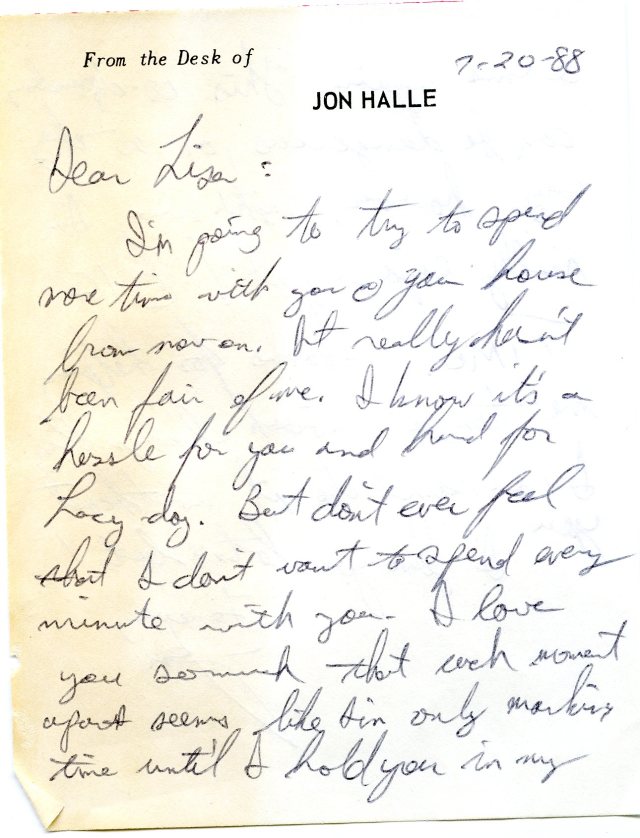 From the Desk of
7-20-88
JON HALLE
Dear Lisa :
I'm going to try to spend
more time with you @ your house
from now on. It really hasn't
been fair of me. I know it's a
hassle for you and hard for
Lacy dog. But don't ever feel
that I don't want to spend every
minute with you. I love
you so much that each moment
apart seems like I'm only marking
time until I hold you in my